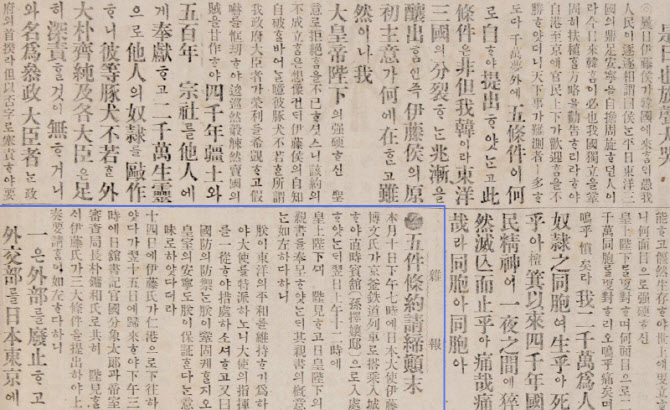 是日也放聲大哭
曩日伊藤侯가韓國에來ᄒᆞᆷᄋᆡ愚我
人民이逐逐相謂曰侯ᄂᆞᆫ平日東洋三
國의鼎足安寧을自擔周旋ᄒᆞ던人이
라今日來韓ᄒᆞᆷ이必也我國獨立을鞏
固히扶植ᄒᆞᆯ方略을勸告ᄒᆞ리라ᄒᆞ야
自港至京에官民上下가歡迎ᄒᆞᆷ을不
勝ᄒᆞ얏더니天下事가難測者ㅣ多ᄒᆞ
도다千萬夢外에五條件이何
로自ᄒᆞ야提出ᄒᆞ얏ᄂᆞᆫ고此
條件은非但我韓이라東洋
三國의分裂ᄒᆞᄂᆞᆫ兆漸을
釀出ᄒᆞᆷ인즉伊藤侯의原
初主意가何에在ᄒᆞᆫ고雖
然이나我
大皇帝陛下의强硬ᄒᆞ신 聖
意로拒絶ᄒᆞᆷ을不已ᄒᆞ셧스니該約의
不成立ᄒᆞᆷ은想像컨ᄃᆡ伊藤侯의自知
自破ᄒᆞᆯ바어ᄂᆞᆯ噫彼豚犬不若ᄒᆞᆫ所謂
我政府大臣者가榮利를希覬ᄒᆞ고假
嚇를恇刦ᄒᆞ야逡巡然觳觫然賣國의
賊을甘作ᄒᆞ야四千年疆土와
五百年 宗社를他人에
게奉獻ᄒᆞ고二千萬生靈
으로他人의奴隸를敺作
ᄒᆞ니彼等豚犬不若ᄒᆞᆫ外
大朴齊純及各大臣은足
히深責ᄒᆞᆯ것이無ᄒᆞ거니
와名爲參政大臣者ᄂᆞᆫ政
府의首揆라但以否字로塞責ᄒᆞ야要
能ᄒᆞ고偃然生存ᄒᆞ야世上에更
니何面目으로强硬ᄒᆞ신
皇上陛下를更對ᄒᆞ며何面目으로二
千萬同胞를更對ᄒᆞ리오嗚呼痛矣며
嗚呼憤矣라我二千萬爲人
奴隸之同胞여生乎아死
乎아檀箕以來四千年國
民精神이一夜之間에猝
然滅亾而止乎아痛哉痛
哉라同胞아同胞아
雜報
●五件條約請締顚末
本月十日下午七時에日本大使伊藤
博文氏가京釜鐵道列車로搭乘入城
ᄒᆞ야直時賓館(孫擇孃邸)으로入處
ᄒᆞ얏ᄂᆞᆫᄃᆡ翌日上午十二時에
皇上陛下ᄭᅴ 陛見ᄒᆞ고日皇陛下의
親書를奉呈ᄒᆞ얏ᄂᆞᆫᄃᆡ其親書의槪意
ᄂᆞᆫ如左ᄒᆞ다ᄒᆞ니
朕이東洋의平和를維持ᄒᆞ기爲ᄒᆞ
야大使를特派ᄒᆞ노니大使의指揮
를一從ᄒᆞ야措處ᄒᆞ소셔ᄒᆞ고又曰
國防의防禦ᄂᆞᆫ朕이鞏固케ᄒᆞᆯ지오
皇室의安寧도朕이保證ᄒᆞᆫ다ᄂᆞᆫ意
味로ᄒᆞ얏다더라
十四日에伊藤氏가仁港으로下往ᄒᆞ
얏다가翌十五日에歸來ᄒᆞ야下午三
時에日舘書記官國分象太郞과帝室
審査局長朴鏞和氏로共히 陛見ᄒᆞ
고伊藤氏가三大條件을提出ᄒᆞ야上
奏要請ᄒᆞᆷ이如左ᄒᆞ다ᄒᆞ니
一은外部를廢止ᄒᆞ고
外交部를日本東京에